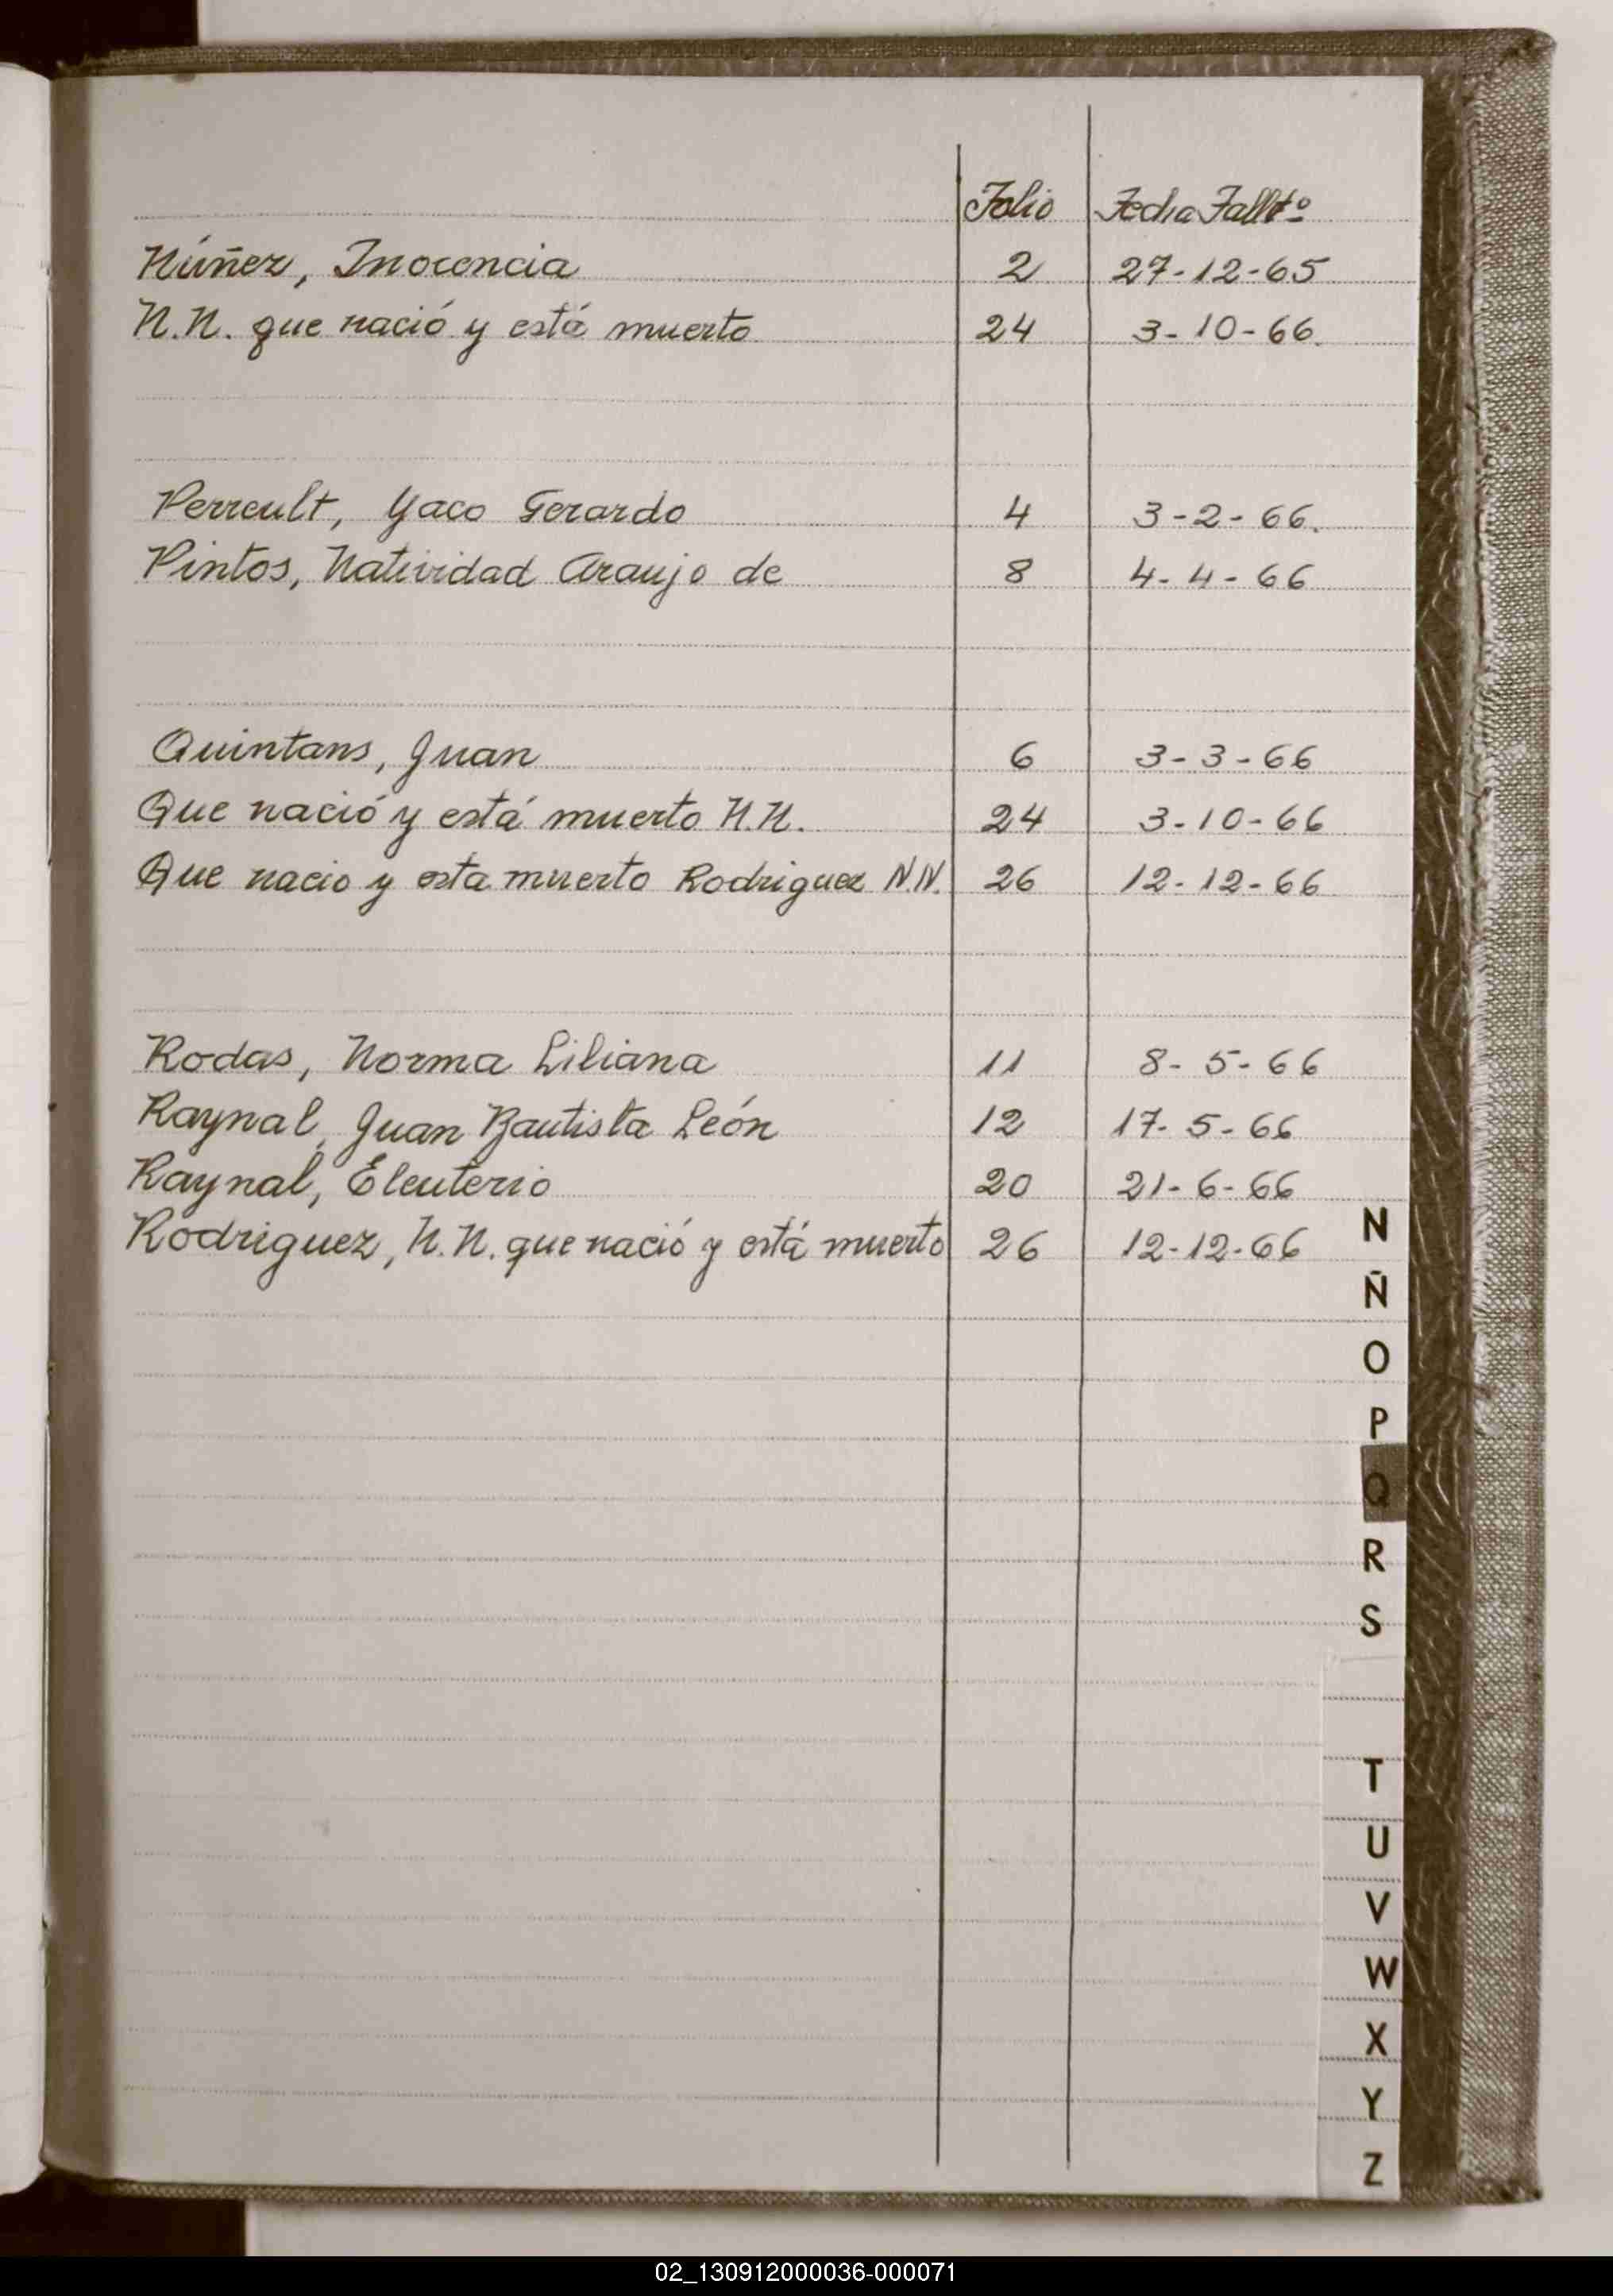 Folio Fecha Falltº
Núñez, Inocencia 2 27-12-65
N.N. que nació y está muerto 24 3-10-66.
Perreult, Yaco Gerardo 4 3-2-66.
Pintos, Natividad Araujo de 8 4-4-66
Quintans, Juan 6 3-3-66
Que nació y está muerto N.N. 24 3-10-66
Que nacio y esta muerto Rodriguez N.N. 26 12-12-66
Rodas, Norma Liliana 11 8-5-66
Raynal, Juan Bautista León 12 17-5-66
Raynal, Eleuterio 20 21-6-66
Rodriguez, N.N. que nació y está muerto 26 12-12-66
N
Ñ
O
P
Q
R
S
T
U
V
W
X
Y
Z
02_130912000036-000071